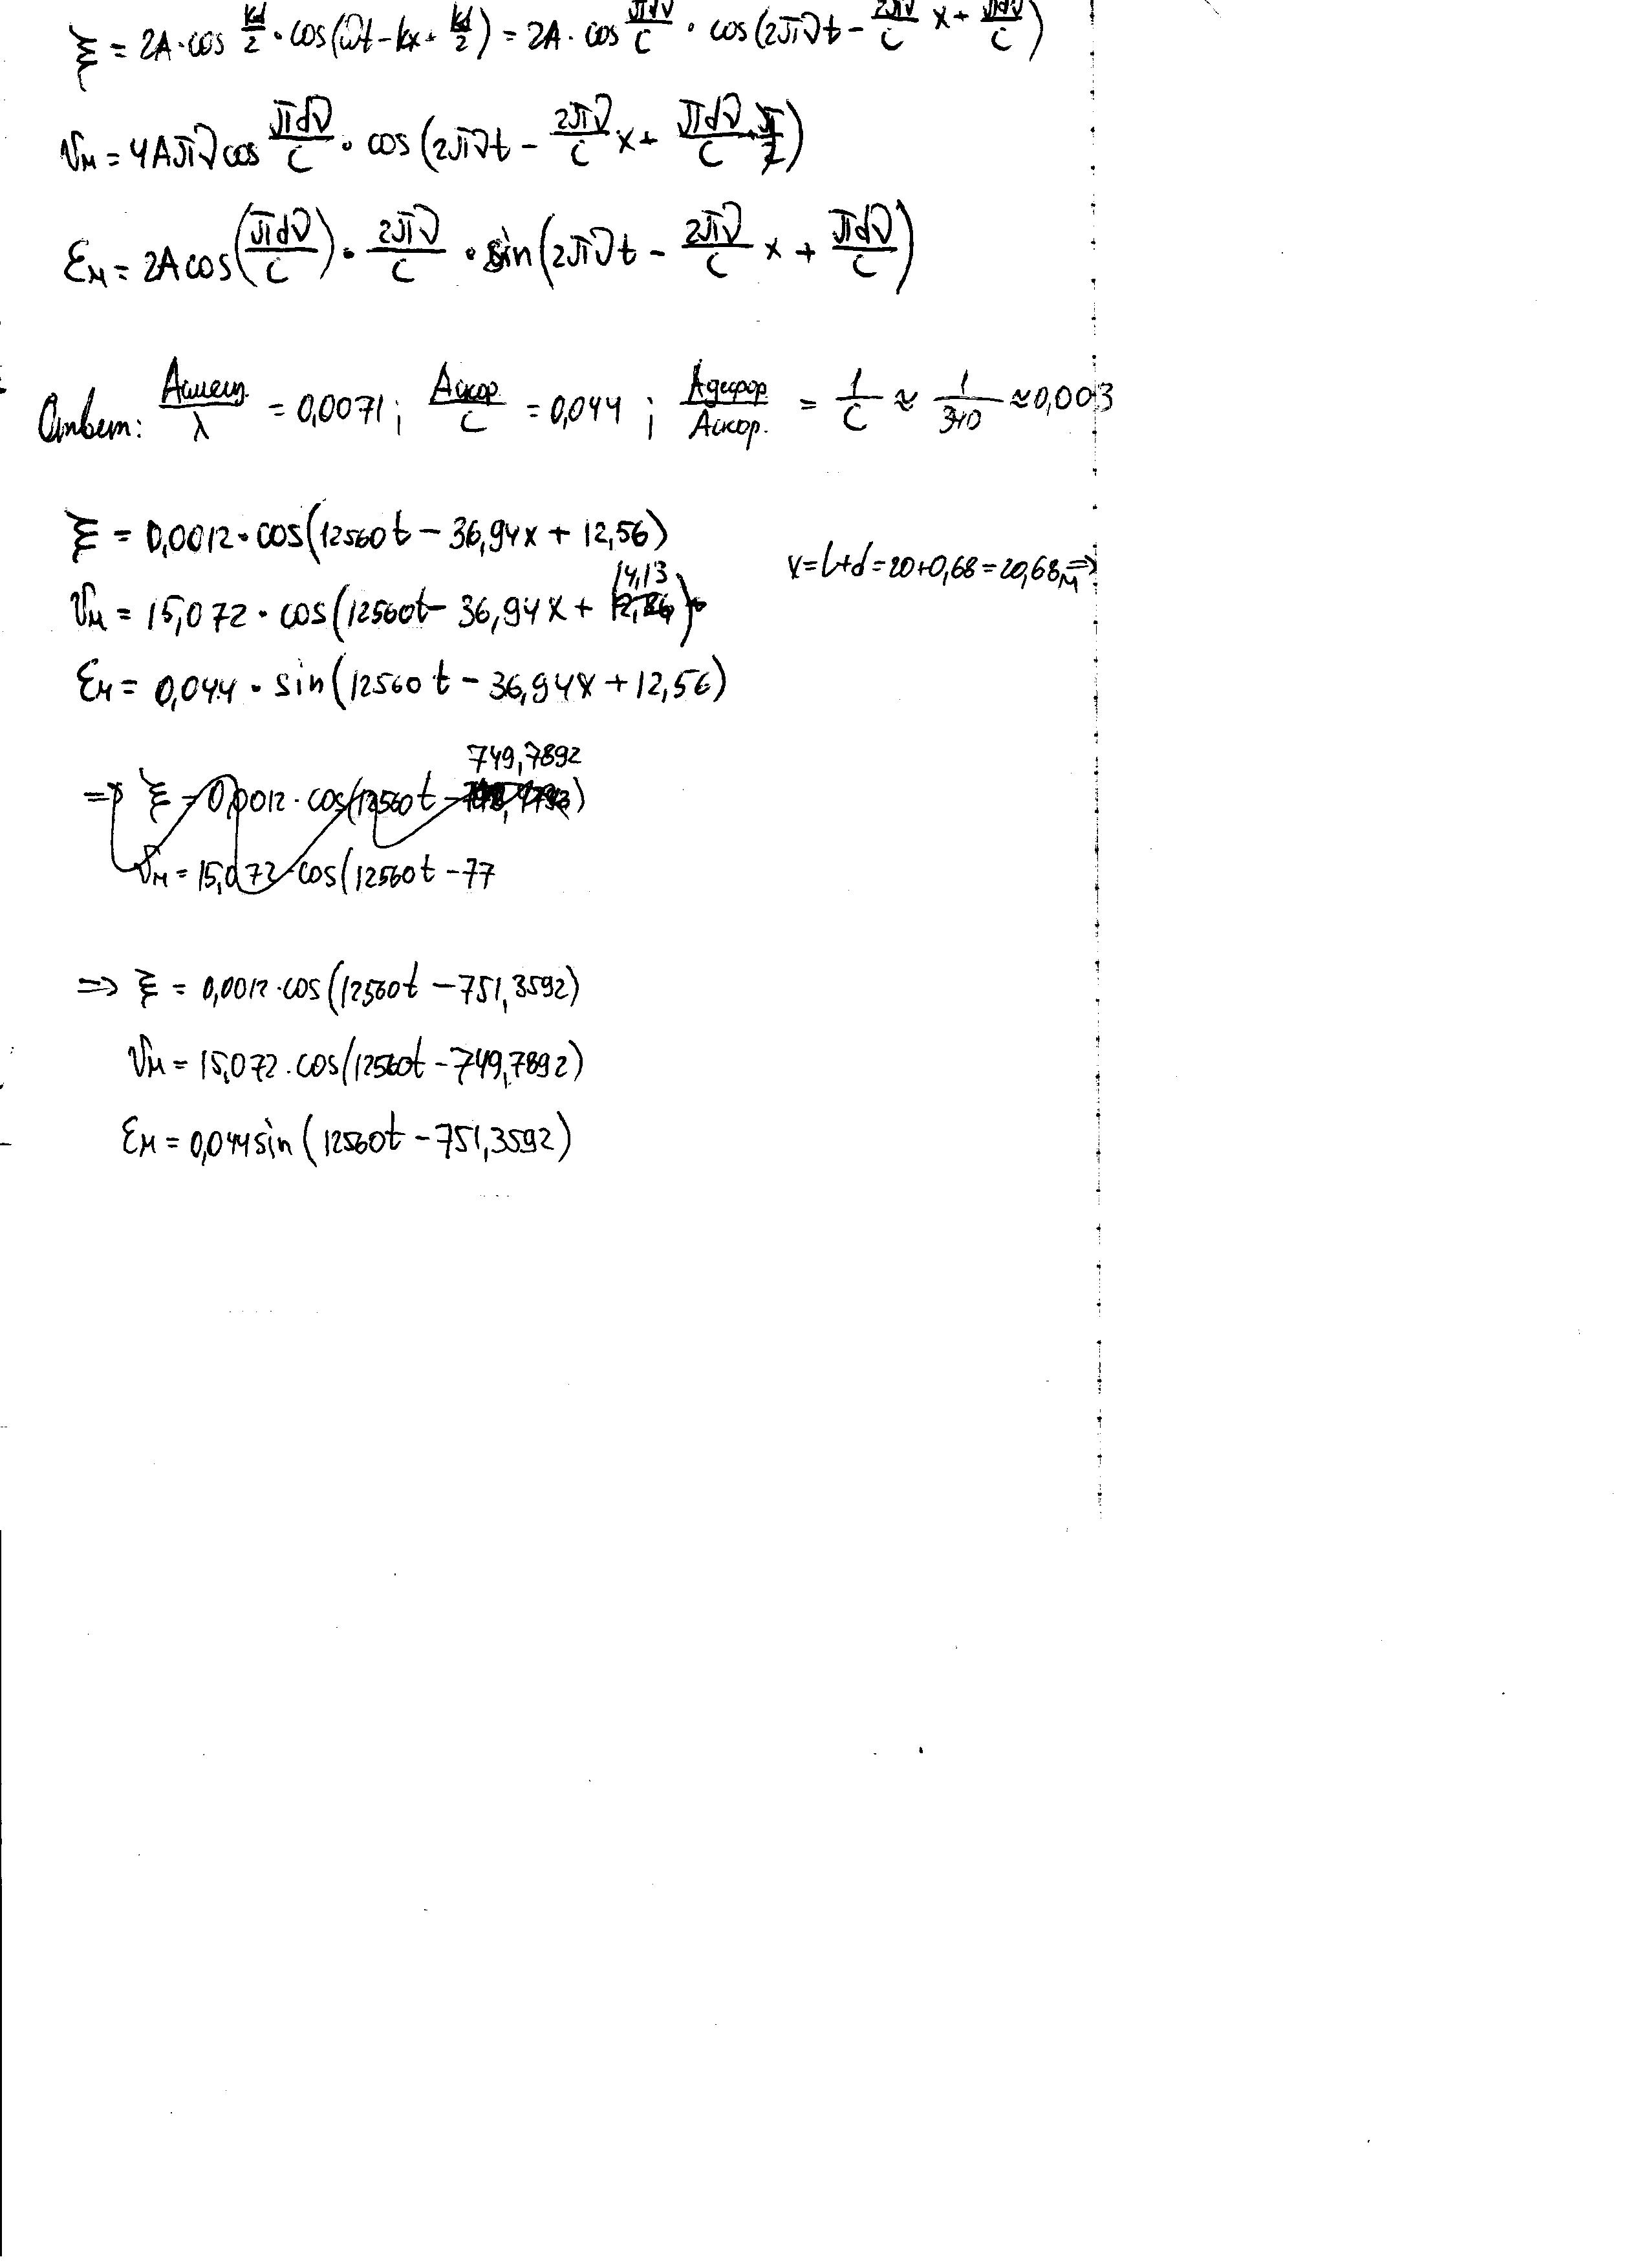 ξ = 2A·cos kd/2 · cos(ωt − kx + kd/2) = 2A · cos πdν/c · cos(2πνt − 2πν/c x + πdν/c)
Vм = 4Aπν cos πdν/c · cos(2πνt − 2πν/c x + πdν/c + π/2)
Eм = 2A cos(πdν/c) · 2πν/c · sin(2πνt − 2πν/c x + πdν/c)
Ответ: Aсмещ./λ = 0,0071; Aскор./c = 0,044; Aдефор/Aскор. = 1/c ≈ 1/340 ≈ 0,003
ξ = 0,0012·cos(12560t − 36,94x + 12,56)
x = l+d = 20+0,68 = 20,68м ⇒
Vм = 15,072 · cos(12560t − 36,94x + 14,13)
Eм = 0,044 · sin(12560t − 36,94x + 12,56)
⇒ ξ = 0,0012·cos(12560t − 749,7892)
Vм = 15,072·cos(12560t − 77
⇒ ξ = 0,0012·cos(12560t − 751,3592)
Vм = 15,072·cos(12560t − 749,7892)
Eм = 0,044sin(12560t − 751,3592)